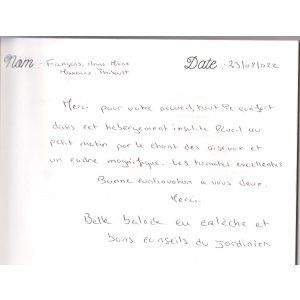 Nom : François, Anne Marie
Maxence Thibault
Date : 23/08/022
Merci pour votre accueil, tout le confort
dans cet hébergement insolite Réveil au
petit matin par le chant des oiseaux et
un cadre magnifique. Les tomates excellentes
Bonne continuation à vous deux.
Merci.
Belle balade en calèche et
bons conseils du jardinier